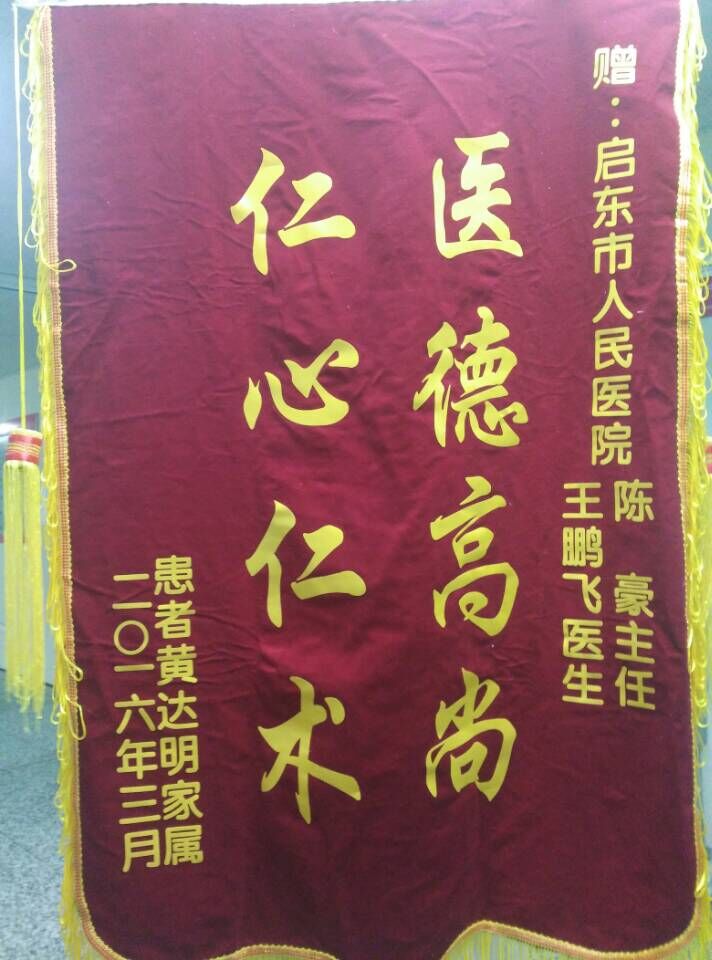 赠：启东市人民医院
陈豪主任
王鹏飞医生
医德高尚
仁心仁术
患者黄达明家属
二〇一六年三月